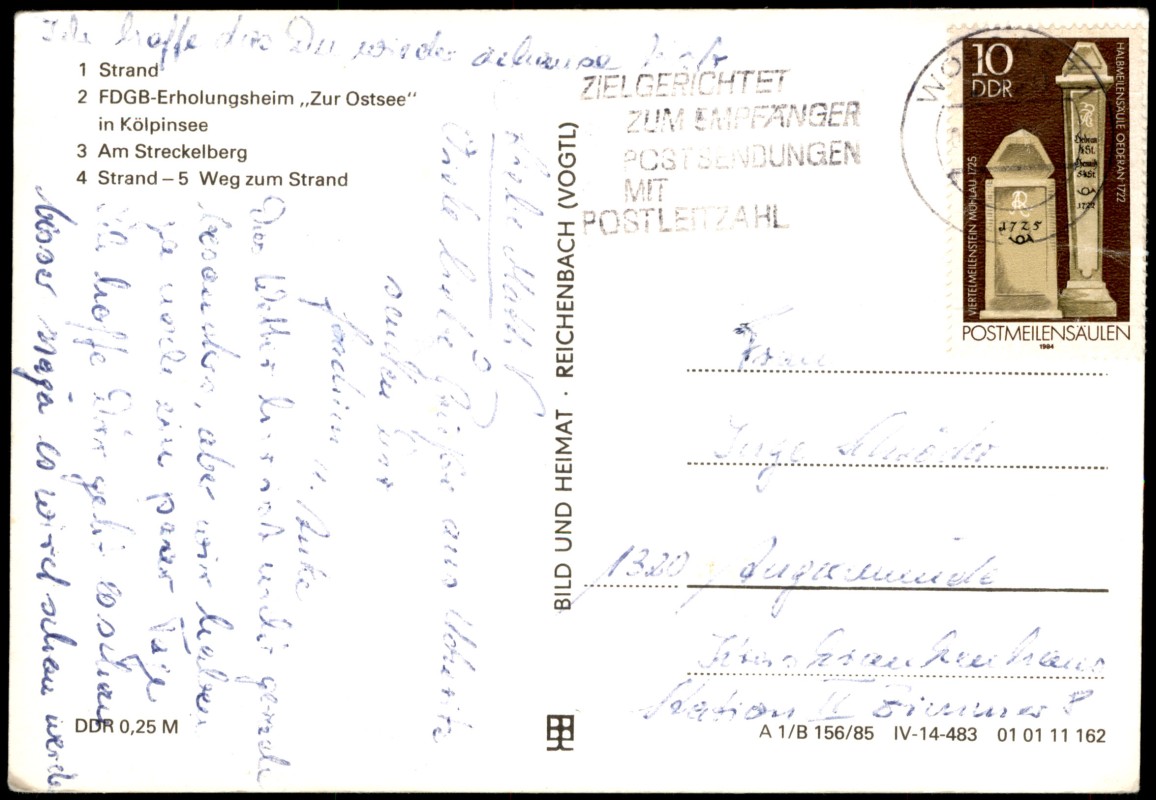 Ich hoffe das Du wieder
1 Strand
2 FDGB-Erholungsheim „Zur Ostsee“
in Kölpinsee
3 Am Streckelberg
4 Strand – 5 Weg zum Strand
Liebe
Grüße aus
senden Dir
Joachim u. Anke
Das Wetter ist nicht gerade
besonders, aber wir haben
ja noch ein paar Tage
Ich hoffe Dir geht es schon
besser
es wird schon werden
DDR 0,25 M
BILD UND HEIMAT · REICHENBACH (VOGTL)
ZIELGERICHTET
ZUM EMPFÄNGER
POSTSENDUNGEN
MIT
POSTLEITZAHL
WO
10
DDR
HALBMEILENSÄULE OEDERAN 1722
VIERTELMEILENSTEIN MÜHLAU 1725
AR
1725
1722
POSTMEILENSÄULEN
1984
Frau
Inge
1320 Angermünde
Kreiskrankenhaus
Station II Zimmer 8
A 1/B 156/85 IV-14-483 01 01 11 162